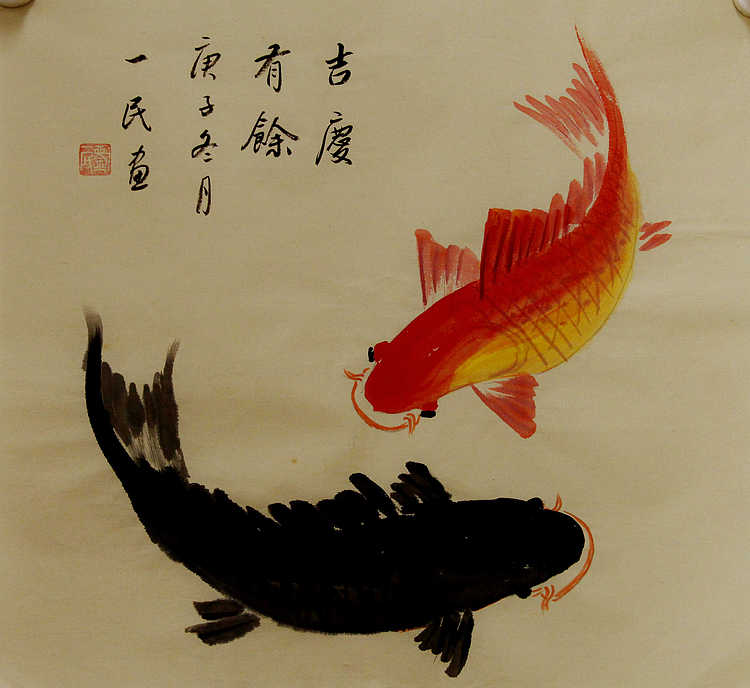 吉慶
有餘
庚子冬月
一民畫